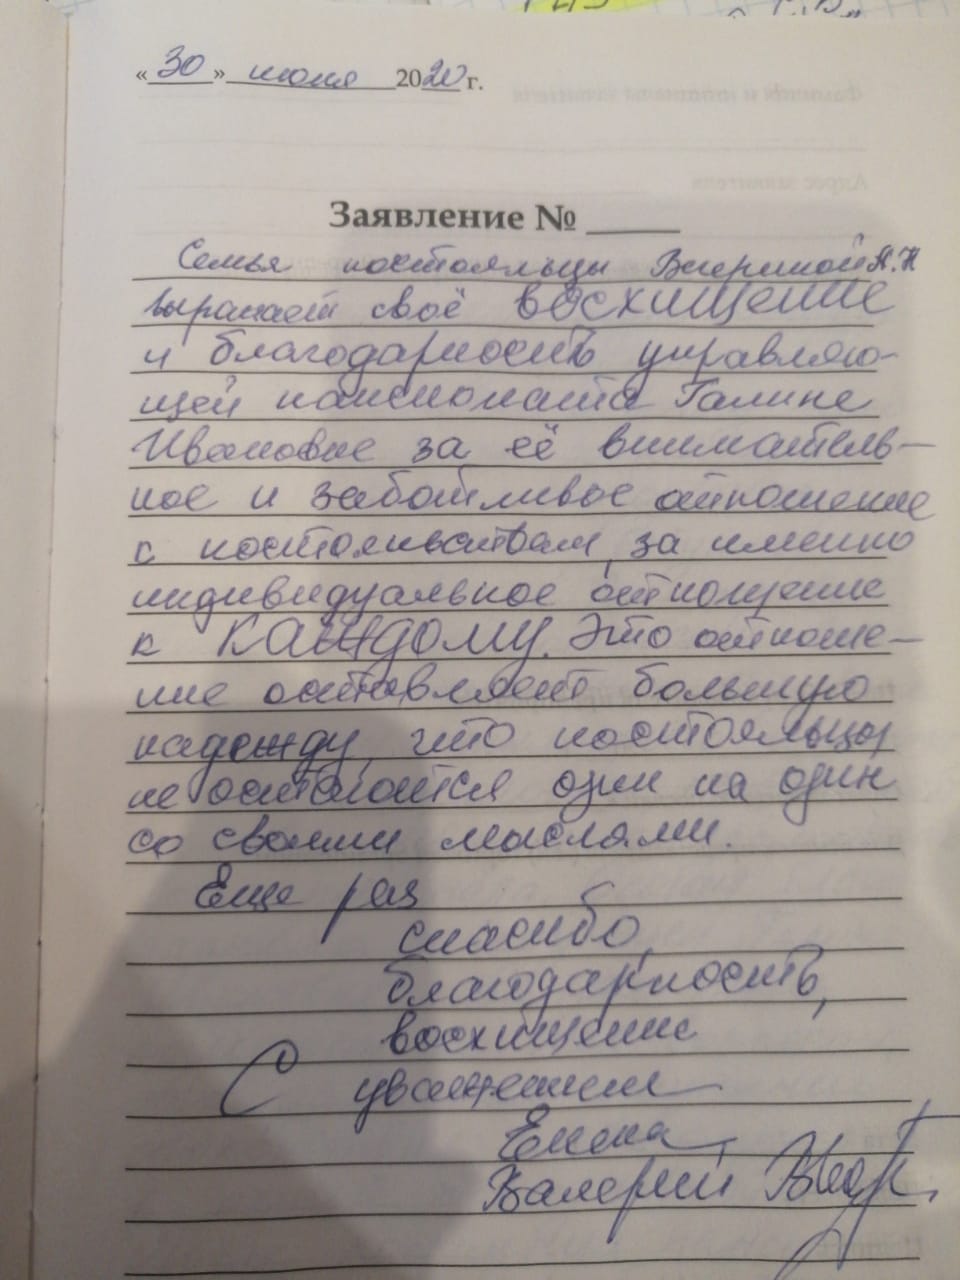 « 30 » июля 2020 г.
Заявление № ____
Семья постояльцы А.Н
выражает своё восхищение
и благодарность управляю-
щей пансионата Галине
Ивановне за её вниматель-
ное и заботливое отношение
с за именно
индивидуальное отношение
к КАЖДОМУ. Это отноше-
ние оставляет большую
надежду, что постояльцы
не остаются один на один
со своими мыслями.
Еще раз
спасибо,
благодарность,
восхищение
С уважением
Елена,
Валерий